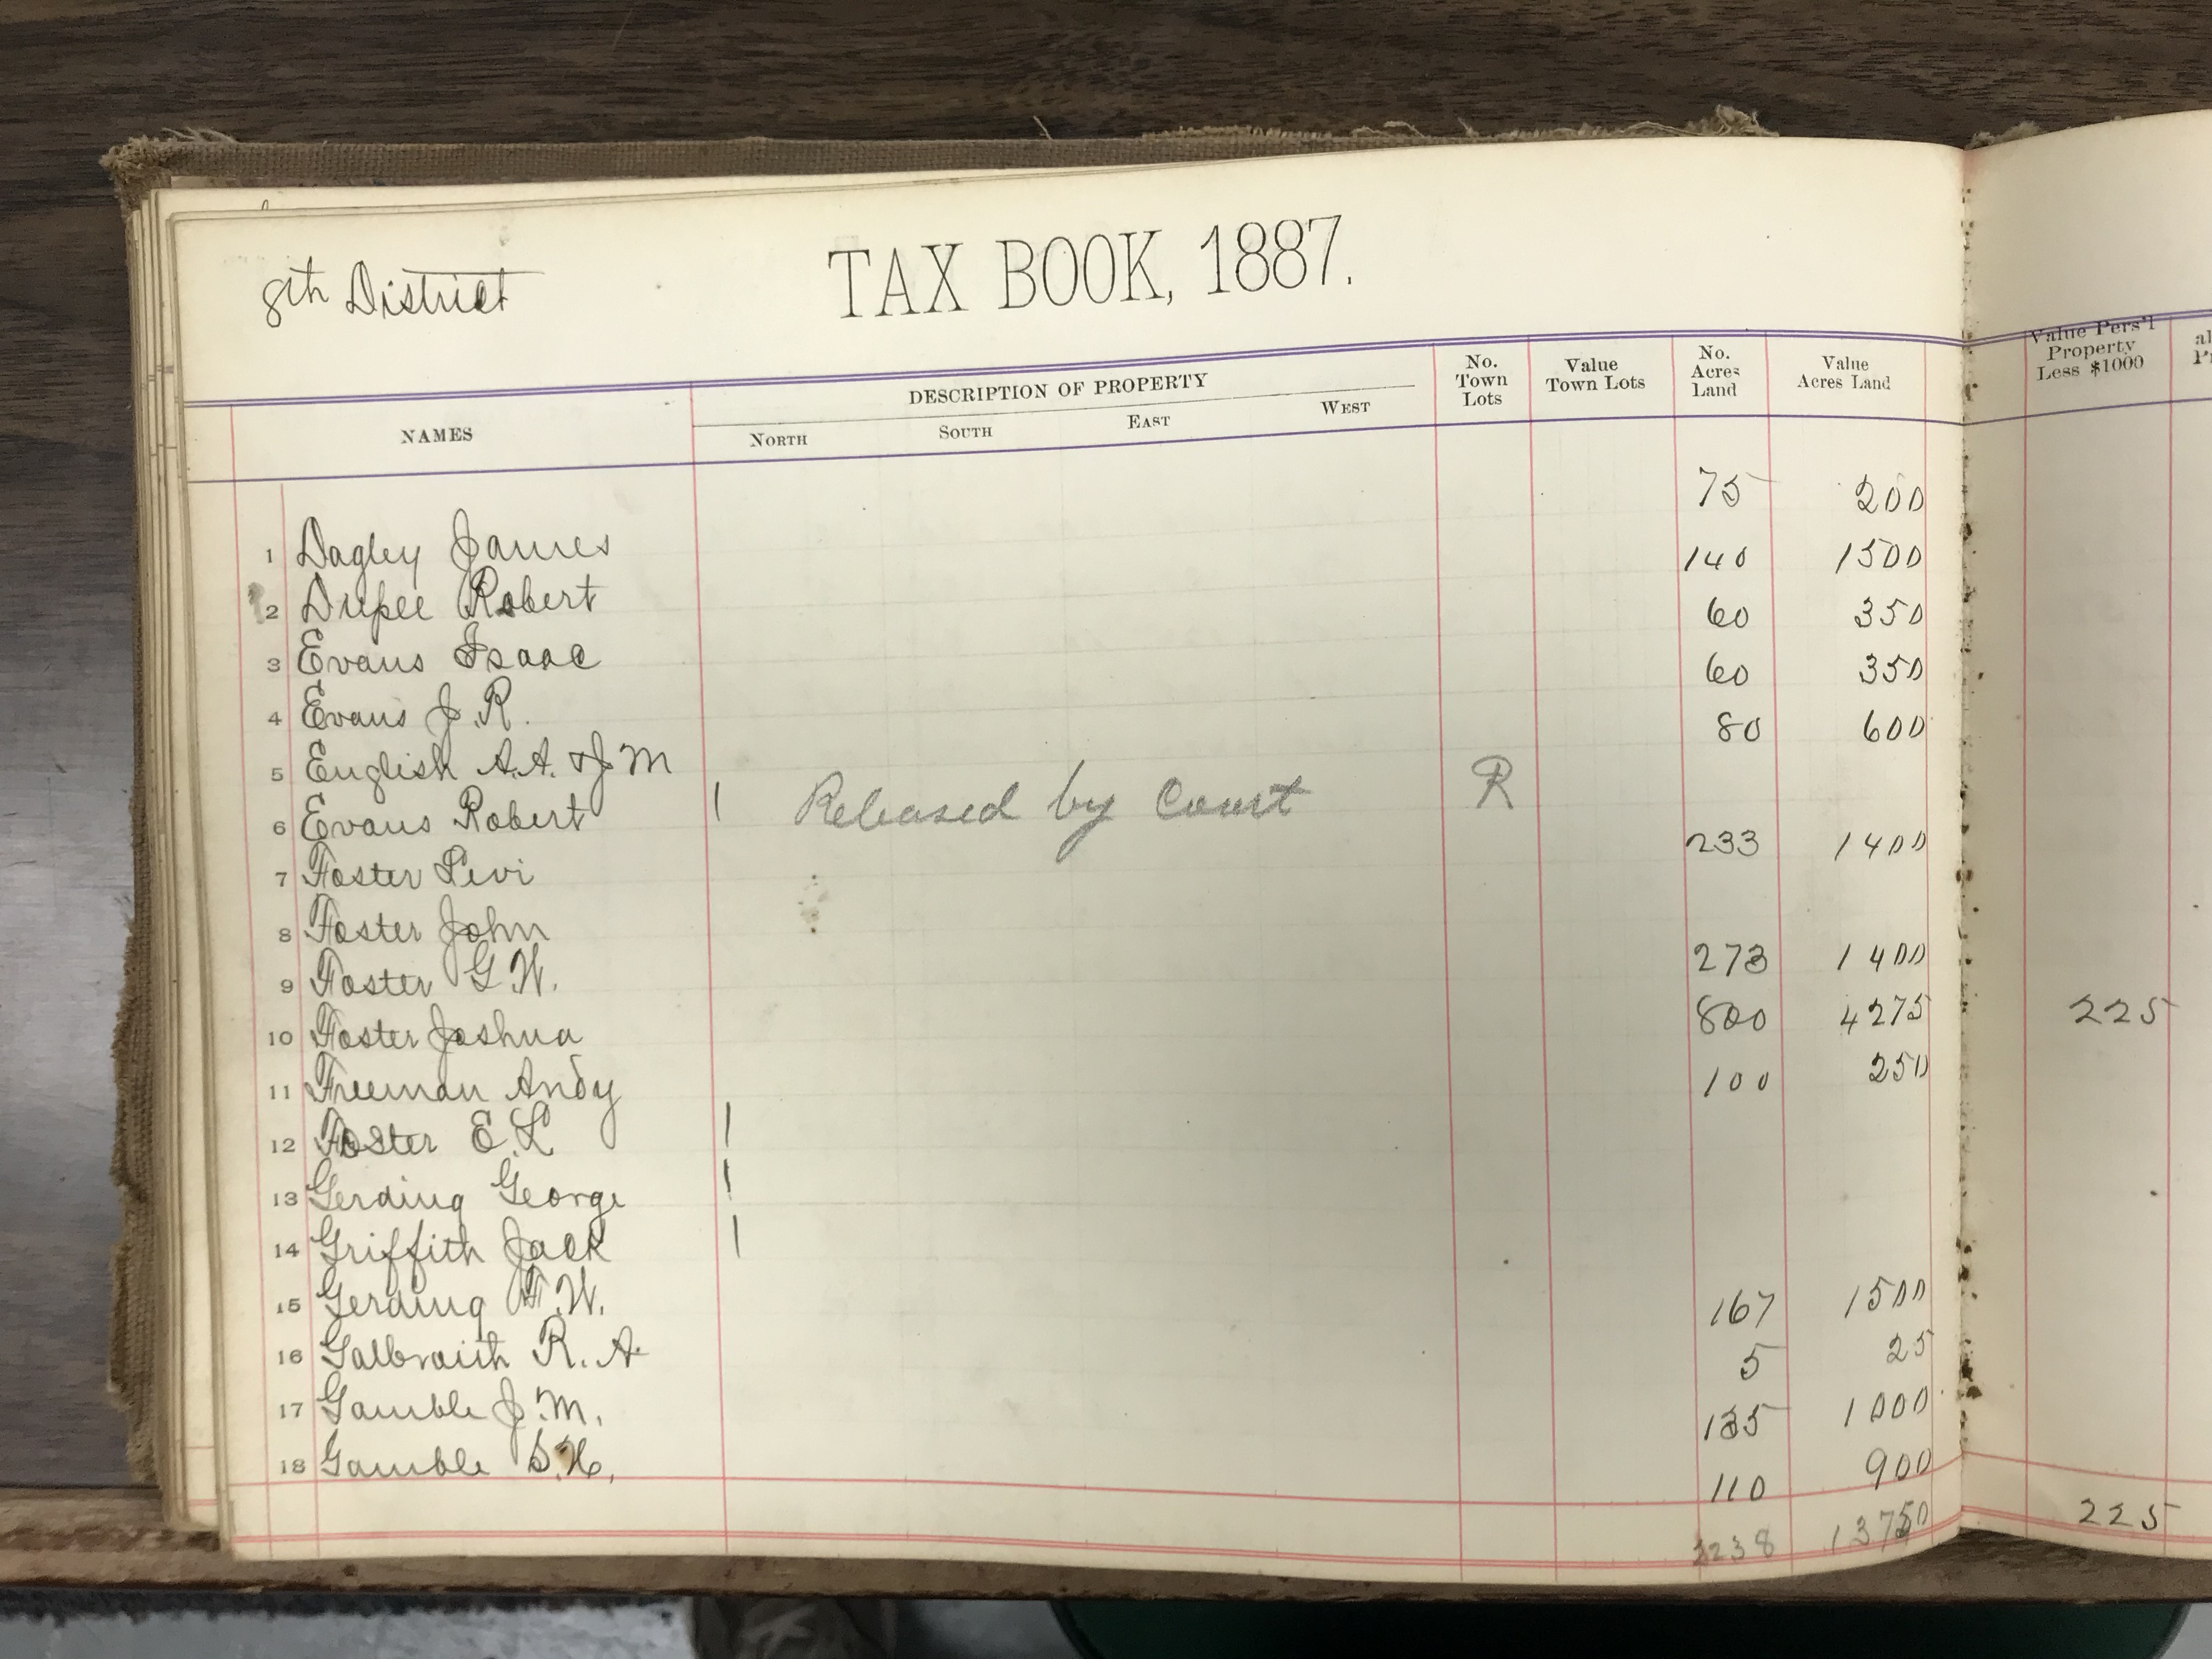 8th District
TAX BOOK, 1887.
NAMES
DESCRIPTION OF PROPERTY
NORTH SOUTH EAST WEST
No. Town Lots
Value Town Lots
No. Acres Land
Value Acres Land
Value Pers'l Property Less $1000
1 Dagley James 75 200
2 Dupee Robert 140 1500
3 Evans Isaac 60 350
4 Evans J. R. 60 350
5 English A. A. & J M 80 600
6 Evans Robert 1 Released by Court R
7 Foster Levi 233 1400
8 Foster John
9 Foster G. W. 273 1400
10 Foster Joshua 800 4275 225
11 Freeman Andy 100 250
12 Foster E. L 1
13 Gerding George 1
14 Griffith Jack 1
15 Gerding F. W. 167 1500
16 Galbraith R. A. 5 25
17 Gamble J. M. 135 1000
18 Gamble S. H. 110 900
2238 13750 225